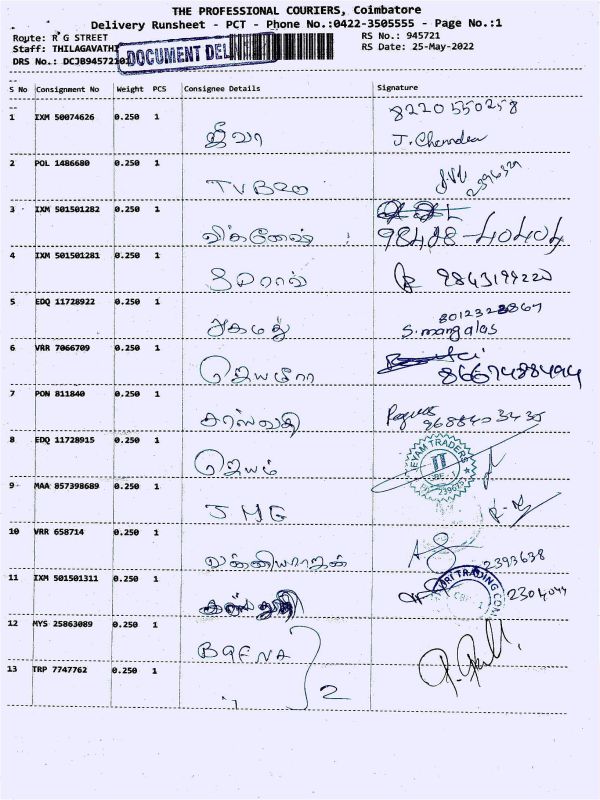 THE PROFESSIONAL COURIERS, Coimbatore
Delivery Runsheet - PCT - Phone No.:0422-3505555 - Page No.:1
Route: R G STREET RS No.: 945721
Staff: THILAGAVATHI RS Date: 25-May-2022
DRS No.: DCJB94572101 DOCUMENT DEL
S No Consignment No Weight PCS Consignee Details Signature
1 IXM 50074626 0.250 1 ஜீவா 8220550258
J. Chendra
2 POL 1486680 0.250 1 TVB20 2396329
3 IXM 501501282 0.250 1 விக்னேஷ் 98428-40404
4 IXM 501501281 0.250 1 9843199220
5 EDQ 11728922 0.250 1 அகமது 8012322867
S. mangalas
6 VRR 7066709 0.250 1 ஜெயமீரா 8667488494
7 PON 811840 0.250 1 சரஸ்வதி 9688403435
8 EDQ 11728915 0.250 1 ஜெயம் JEYAM TRADERS
CBE-1
9 MAA 857398689 0.250 1 JMG
10 VRR 658714 0.250 1 2393638
11 IXM 501501311 0.250 1 TRADING CBE-1 2304044
12 MYS 25863089 0.250 1
13 TRP 7747762 0.250 1 " 2